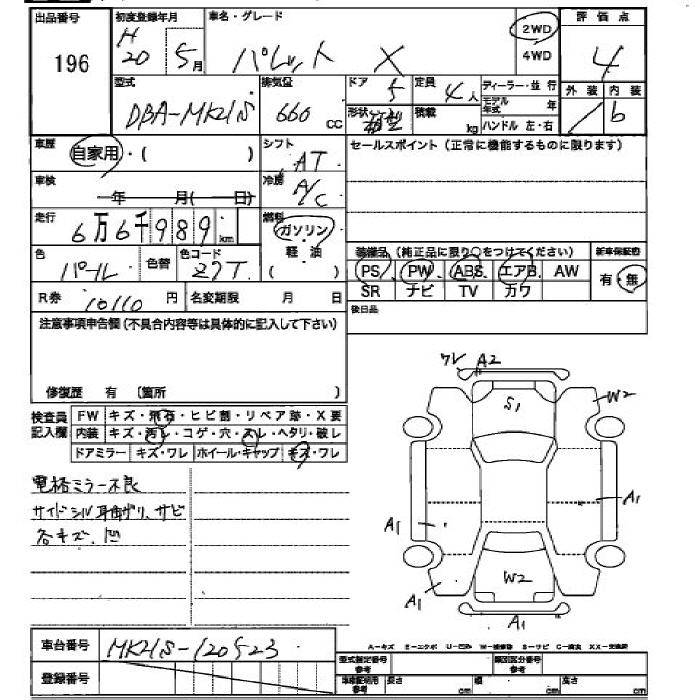 出品番号 196
初度登録年月 H20 5月
車名・グレード パレット X
2WD
4WD
評価点 4
外装 内装
/ b
型式 DBA-MK21S
排気量 660 cc
ドア 5
定員 4人
形状 箱型
積載 kg
ディーラー・並行
モデル年式 年
ハンドル 左・右
車歴 自家用・( )
シフト AT
セールスポイント(正常に機能するものに限ります)
車検 年 月( 日)
冷房 A/C
走行 6万6千989km
燃料 ガソリン
軽油
( )
色 パール 色替 色コード Z7T
装備品(純正品に限り○をつけてください)
新車保証書
PS PW ABS エアB AW
有・無
SR ナビ TV カワ
R券 10110円 名変期限 月 日
後日品
注意事項申告欄(不具合内容等は具体的に記入して下さい)
修復歴 有 〔箇所 〕
検査員記入欄
FW キズ・飛石・ヒビ割・リペア跡・X要
内装 キズ・汚レ・コゲ・穴・スレ・ヘタリ・破レ
ドアミラー キズ・ワレ ホイール・キャップ キズ・ワレ
電格ミラー不良
サイドシル 曲り、サビ
各キズ、凹
ワレ A2
S1
W2
A1
A1
W2
A1
A1
車台番号 MK21S-120523
登録番号
A-キズ E-エクボ U-凹み W-補修跡 S-サビ C-腐食 XX-交換済
型式指定番号 参考
類別区分番号 参考
車検証明用 参考
長さ cm
幅 cm
高さ cm